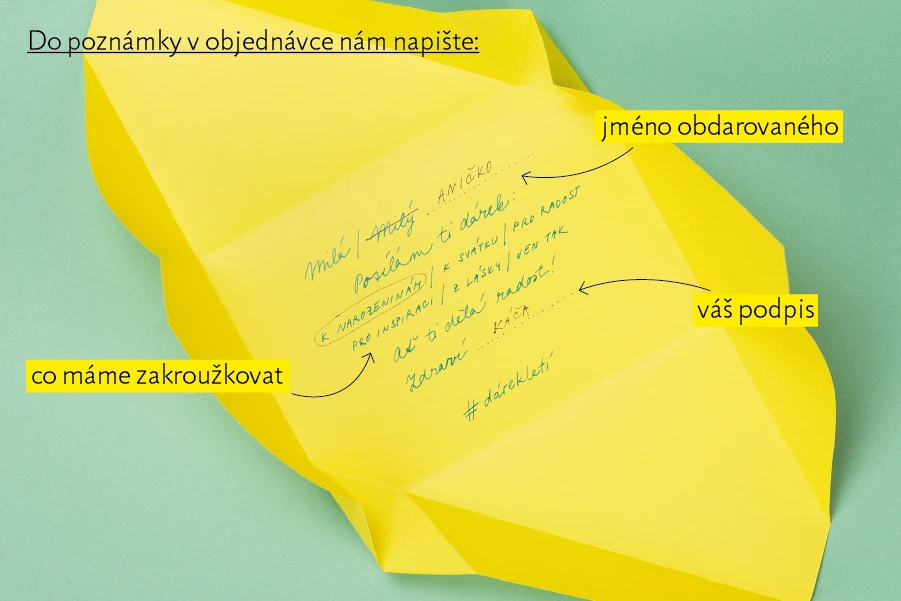 Do poznámky v objednávce nám napište:
jméno obdarovaného
Milá / Milý ... ANIČKO ..........
Posílám ti dárek:
K NAROZENINÁM / K SVÁTKU / PRO RADOST
PRO INSPIRACI / Z LÁSKY / JEN TAK
Ať ti dělá radost!
Zdraví ... KÁČA ..........
#dárekletí
váš podpis
co máme zakroužkovat